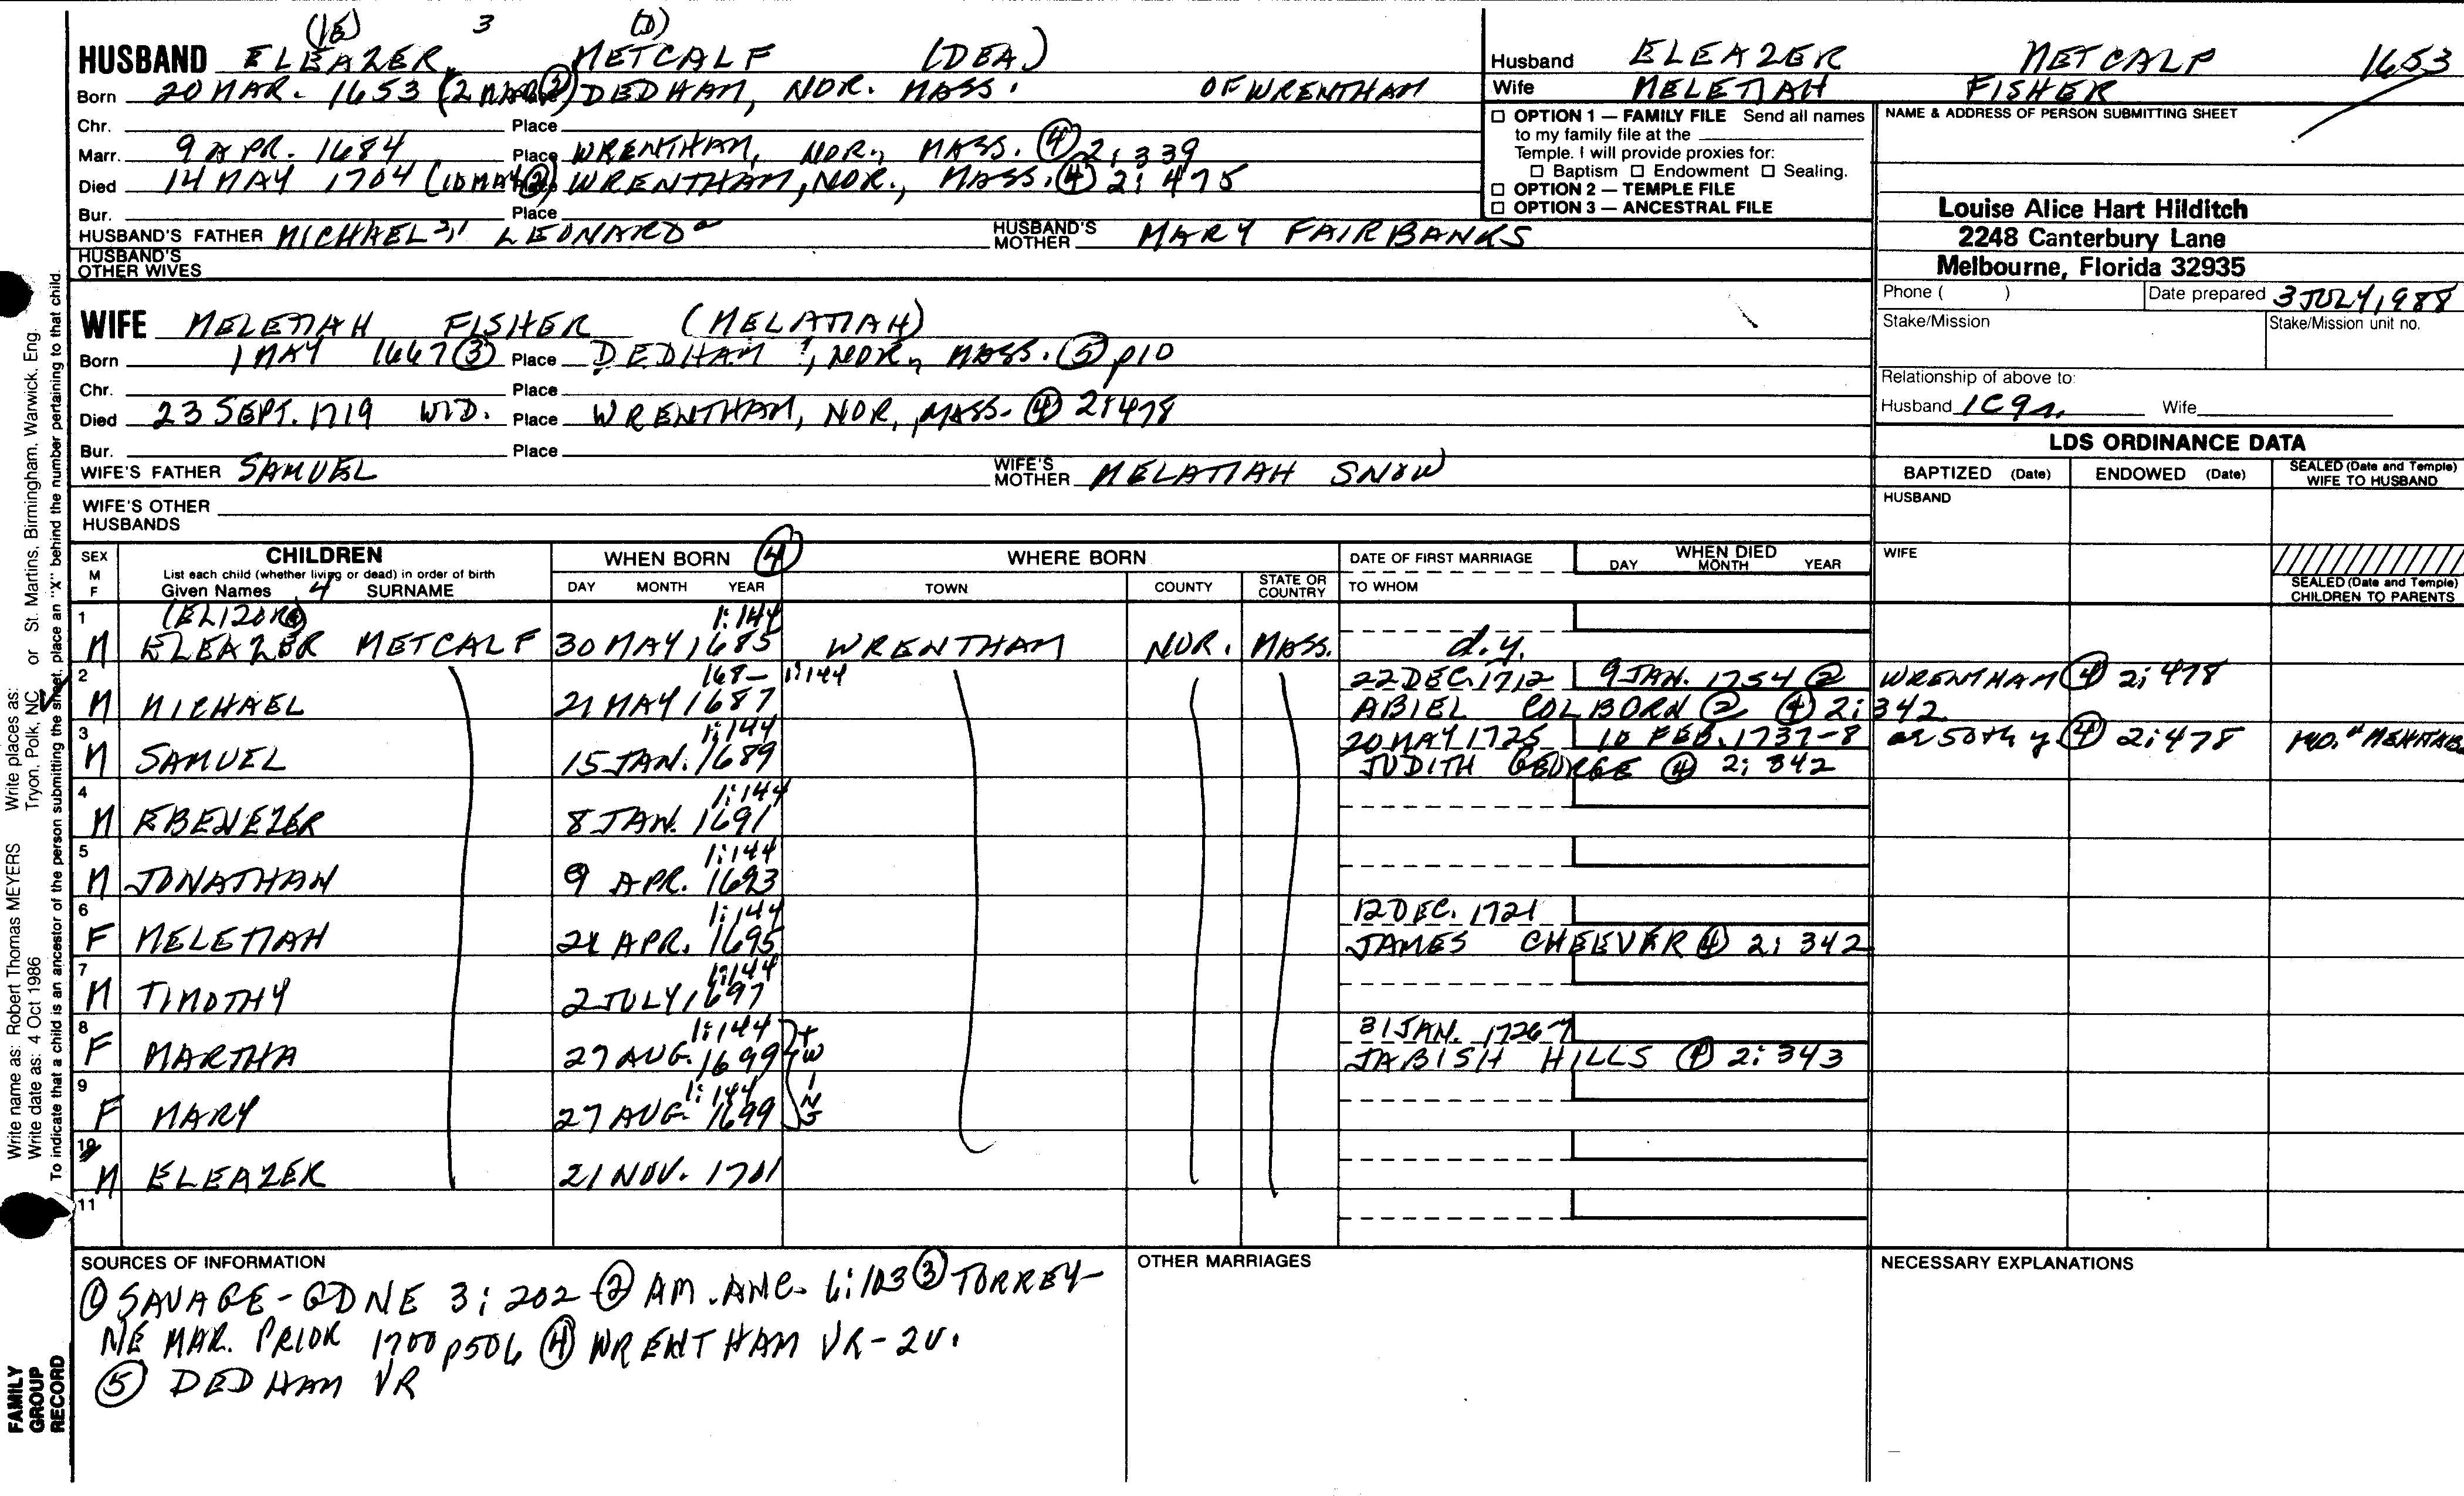 (IE) 3 (1)
HUSBAND ELEAZER METCALF (DEA)
Born 20 MAR. 1653 (2 MAR ②) DEDHAM, NOR. MASS. OF WRENTHAM
Chr. Place
Marr. 9 APR. 1684 Place WRENTHAM, NOR., MASS. ④ 2:339
Died 14 MAY 1704 (10 MAY ②) WRENTHAM, NOR., MASS. ④ 2:475
Bur. Place
HUSBAND'S FATHER MICHAEL LEONARD HUSBAND'S MOTHER MARY FAIRBANKS
HUSBAND'S OTHER WIVES
WIFE MELETIAH FISHER (MELATIAH)
Born 1 MAY 1667 ③ Place DEDHAM, NOR, MASS. ⑤ p10
Chr. Place
Died 23 SEPT. 1719 WID. Place WRENTHAM, NOR., MASS. ④ 2:478
Bur. Place
WIFE'S FATHER SAMUEL WIFE'S MOTHER MELATIAH SNOW
WIFE'S OTHER HUSBANDS
Husband ELEAZER METCALF 1653
Wife MELETIAH FISHER
☐ OPTION 1 — FAMILY FILE Send all names
to my family file at the
Temple. I will provide proxies for:
☐ Baptism ☐ Endowment ☐ Sealing.
☐ OPTION 2 — TEMPLE FILE
☐ OPTION 3 — ANCESTRAL FILE
NAME & ADDRESS OF PERSON SUBMITTING SHEET
Louise Alice Hart Hilditch
2248 Canterbury Lane
Melbourne, Florida 32935
Phone ( ) Date prepared 3 JULY 1988
Stake/Mission Stake/Mission unit no.
Relationship of above to:
Husband 1C9r. Wife
LDS ORDINANCE DATA
BAPTIZED (Date) ENDOWED (Date) SEALED (Date and Temple) WIFE TO HUSBAND
HUSBAND
WIFE
SEALED (Date and Temple) CHILDREN TO PARENTS
SEX M F CHILDREN WHEN BORN ④ WHERE BORN DATE OF FIRST MARRIAGE WHEN DIED
List each child (whether living or dead) in order of birth
Given Names 4 SURNAME DAY MONTH YEAR TOWN COUNTY STATE OR COUNTRY TO WHOM DAY MONTH YEAR
1 (ELIZOR④) 1:144
M ELEAZER METCALF 30 MAY 1685 WRENTHAM NOR. MASS. d.y.
2 168- 1:144 22 DEC. 1712 9 JAN. 1754 ② WRENTHAM ④ 2:478
M MICHAEL 21 MAY 1687 ABIEL COLBORN ② ④ 2:342
3 1:144 20 MAY 1725 10 FEB. 1737-8 ae 50th y ④ 2:478
M SAMUEL 15 JAN. 1689 JUDITH GEORGE ④ 2:342
4 1:144
M EBENEZER 8 JAN. 1691
5 1:144
M JONATHAN 9 APR. 1693
6 1:144 12 DEC. 1721
F MELETIAH 21 APR. 1695 JAMES CHEEVER ④ 2:342
7 1:144
M TIMOTHY 2 JULY 1697
8 1:144 31 JAN. 1726-7
F MARTHA 27 AUG. 1699 TWINS JABISH HILLS ④ 2:343
9 1:144
F MARY 27 AUG. 1699
10
M ELEAZER 21 NOV. 1701
11
SOURCES OF INFORMATION OTHER MARRIAGES NECESSARY EXPLANATIONS
① SAVAGE-GDNE 3:202 ② AM. ANC. 6:103 ③ TORREY-
NE MAR. PRIOR 1700 p506 ④ WRENTHAM VR-2V.
⑤ DEDHAM VR
Write name as: Robert Thomas MEYERS Write places as: Tryon, Polk, NC or St. Martins, Birmingham, Warwick, Eng.
Write date as: 4 Oct 1986
To indicate that a child is an ancestor of the person submitting the sheet, place an "X" behind the number pertaining to that child.
FAMILY
GROUP
RECORD